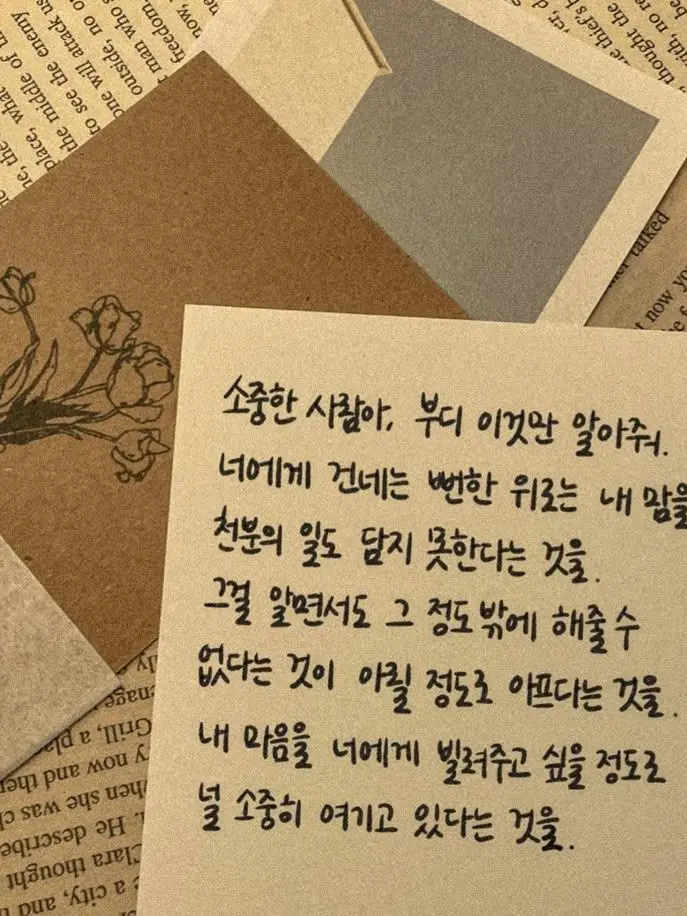 no
now,
man who s
freedom.
outside, no
one will attack us
to see the enemy
the middle of
place, what
the
thought the
with, no re
talked
now yo
소중한 사람아, 부디 이것만 알아줘.
너에게 건네는 뻔한 위로는 내 맘을
천분의 일도 담지 못한다는 것을.
그걸 알면서도 그 정도밖에 해줄 수
없다는 것이 아릴 정도로 아프다는 것을.
내 마음을 너에게 빌려주고 싶을 정도로
널 소중히 여기고 있다는 것을.
Grill, a pla
now and then
when she was
He describe
Clara thought
a city, and